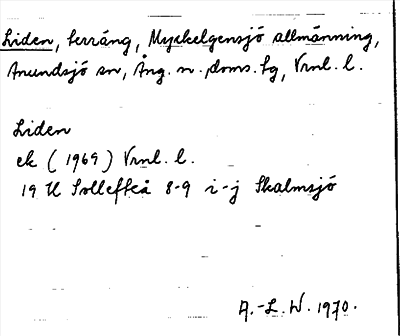 Liden, terräng, Myckelgensjö allmänning,
Anundsjö sn, Ång. n. doms. fg, Vrnl. l.
Liden
ek (1969) Vrnl. l.
19 H Sollefteå 8-9 i-j Skalmsjö
A.-L. W. 1970.